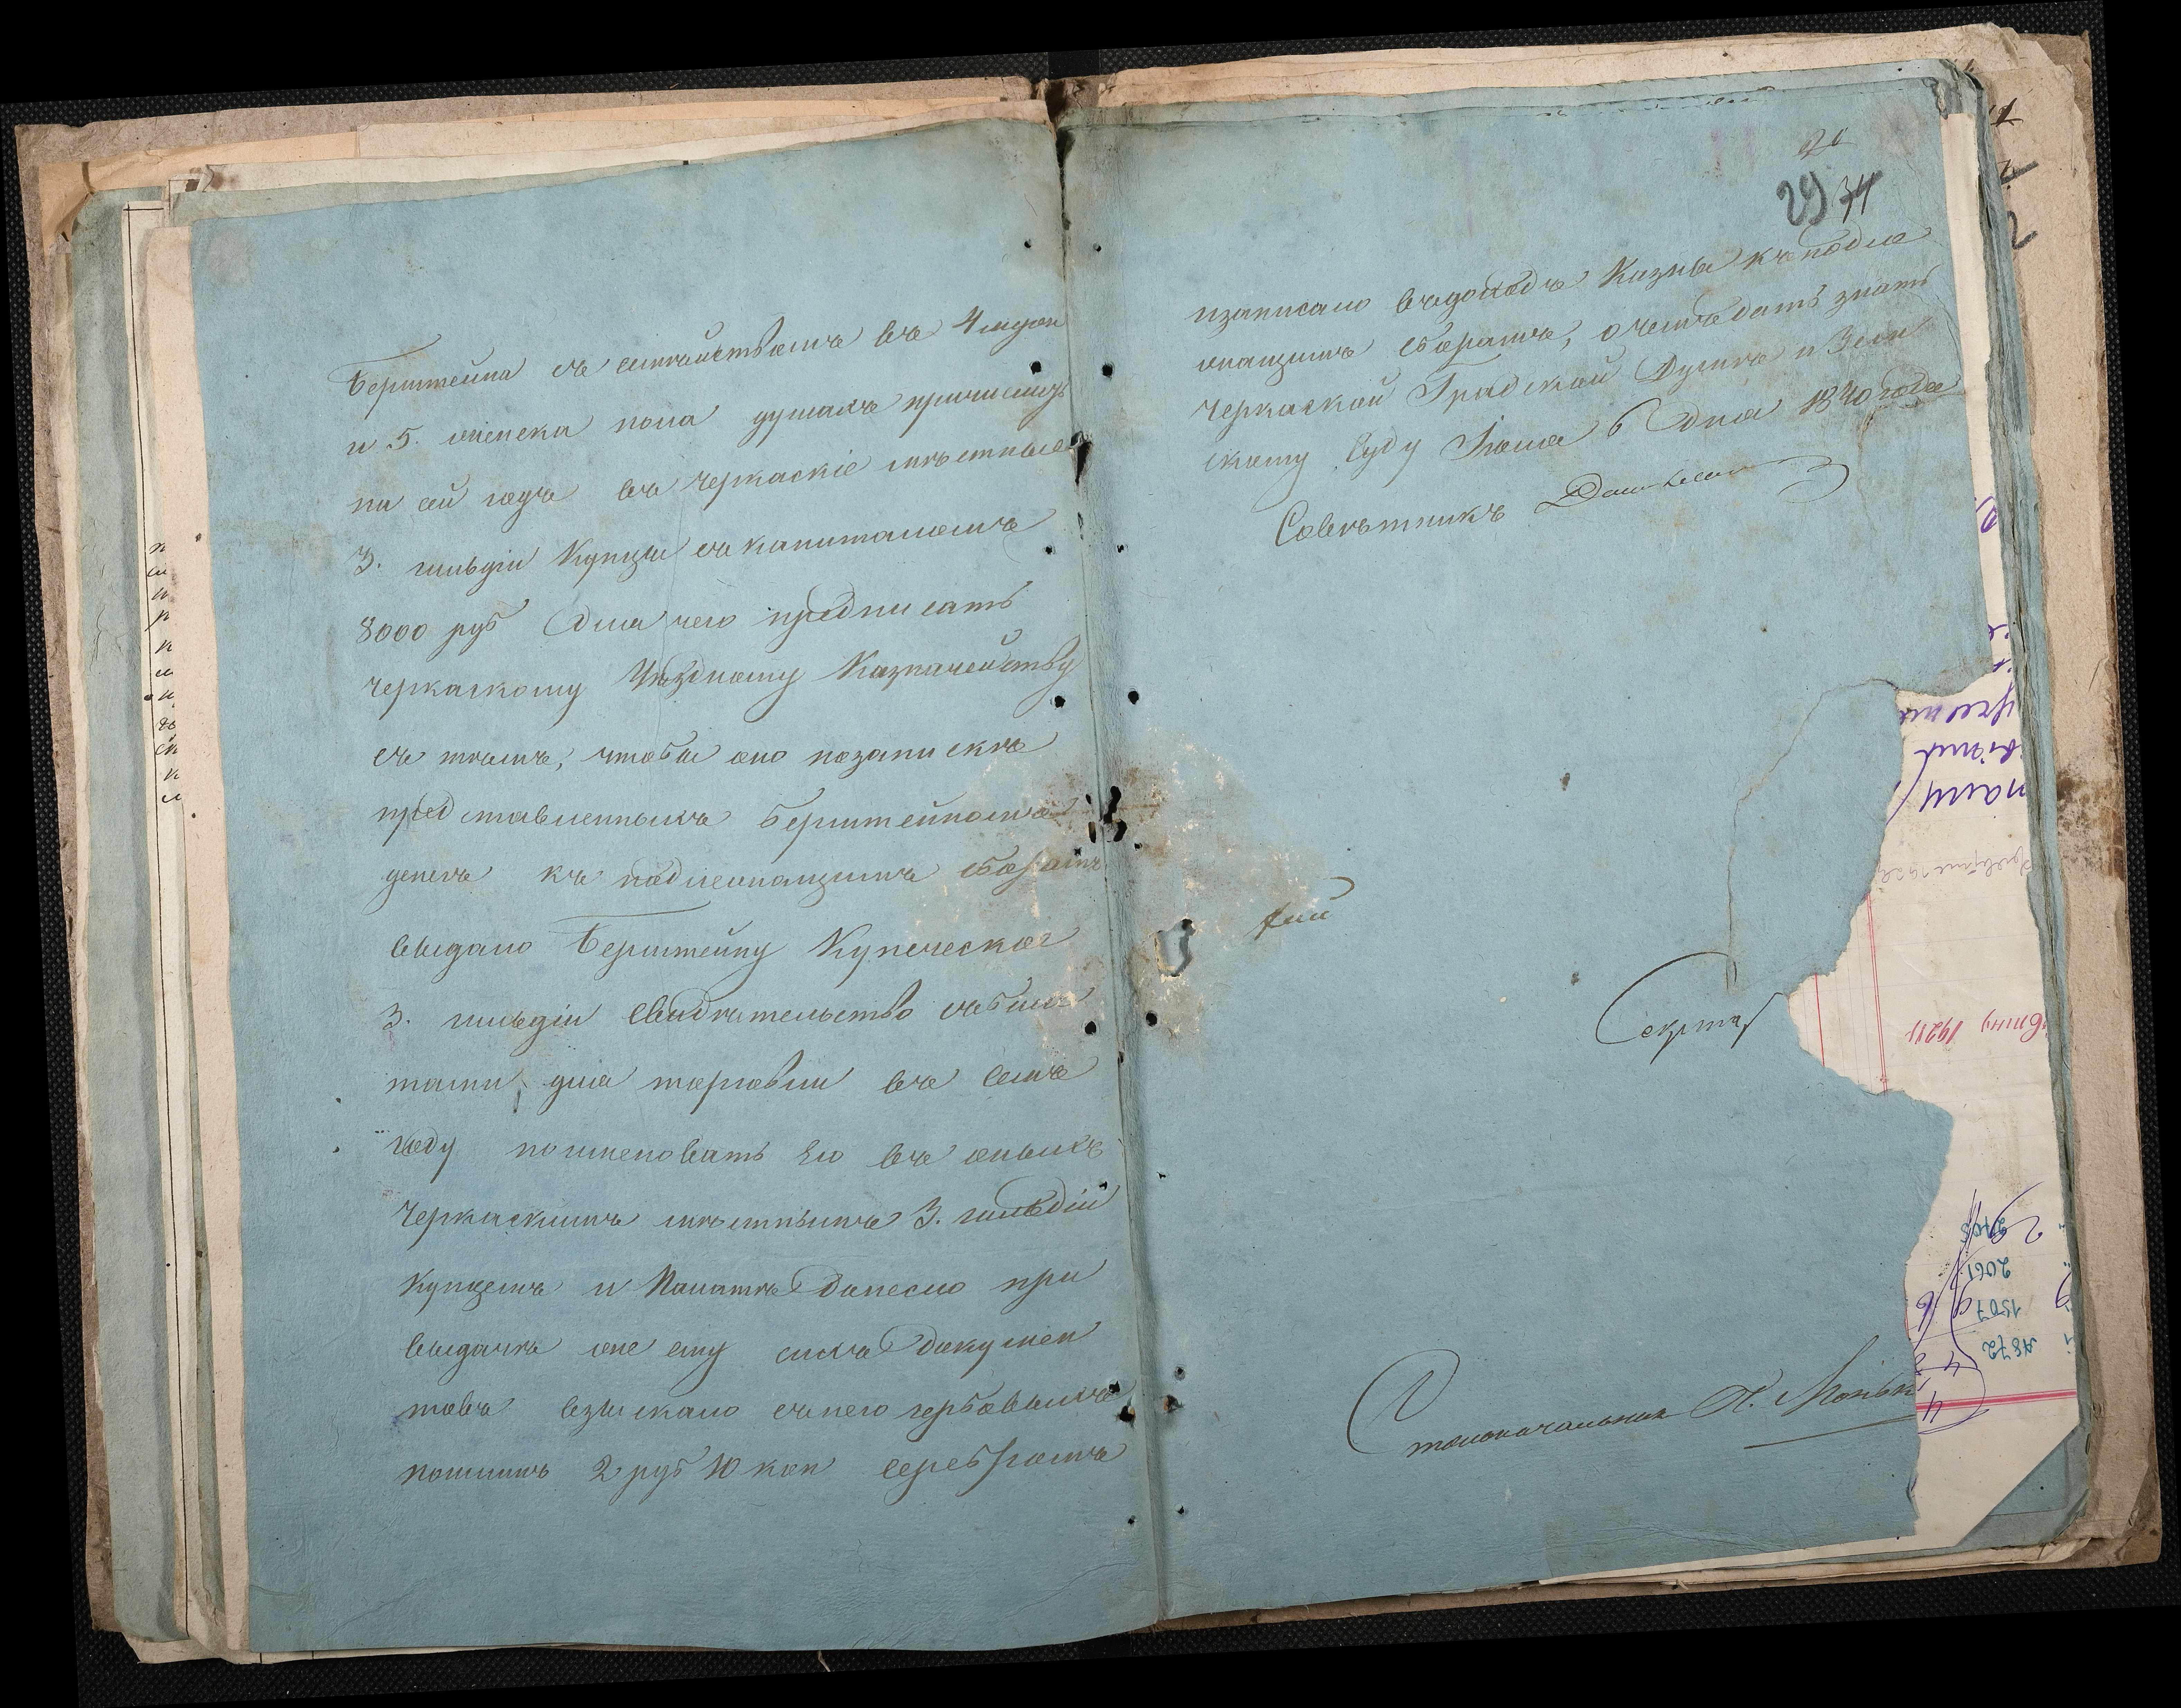 Бернштейна съ семѣйствомъ въ 4 муж
и 5. женска пола душахъ причислить
на сей годъ въ Черкаскіе мѣстные
3. гильдіи Купцы съ капиталомъ
8000 руб для чего предписать
Черкаскому Уѣздному Казначейству
съ тѣмъ, чтобы оно по запискѣ
представленныхъ Бернштейномъ
денегъ къ подлежащимъ сборамъ
выдало Бернштейну Купеческое
3. гильдіи Свидѣтельство съ биле
тами для торговли въ семъ
году поименовать его въ оныхъ
Черкаскимъ мѣстнымъ 3. гильдіи
Купцемъ и Палатѣ донесло при
выдачѣ же ему сихъ докумен
товъ взыскало съ него гербовыхъ
пошлинъ 2 руб 10 коп серебромъ
29 34
и записало въ доходъ Казны къ подле
жащимъ сборамъ, о чемъ дать знать
Черкаской Градской Думѣ и Зем
скому Суду Іюля 6 дня 1840 года
Совѣтникъ
Секрта
Столоначальникъ